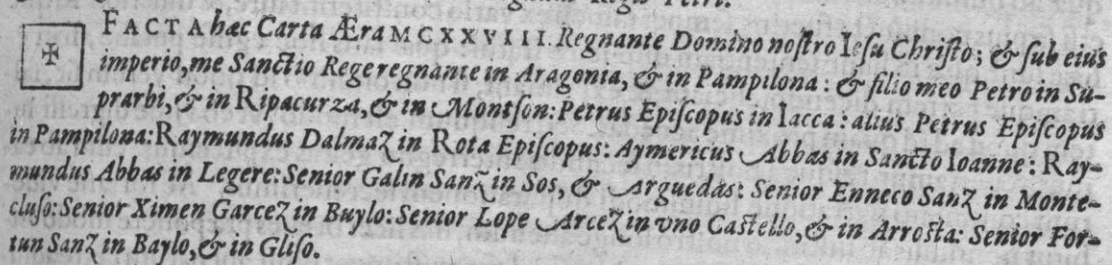 FACTA hæc Carta Æra MCXXVIII. Regnante Domino nostro Iesu Christo; & sub eius
imperio, me Sanctio Rege regnante in Aragonia, & in Pampilona: & filio meo Petro in Su-
prarbi, & in Ripacurza, & in Montson: Petrus Episcopus in Iacca: alius Petrus Episcopus
in Pampilona: Raymundus Dalmaz in Rota Episcopus: Aymericus Abbas in Sancto Ioanne: Ray-
mundus Abbas in Legere: Senior Galin Sanz̃ in Sos, & Arguedas: Senior Enneco Sanz in Monte-
cluso: Senior Ximen Garcez in Buylo: Senior Lope Arcez in vno Castello, & in Arrosta: Senior For-
tun Sanz in Baylo, & in Gliso.